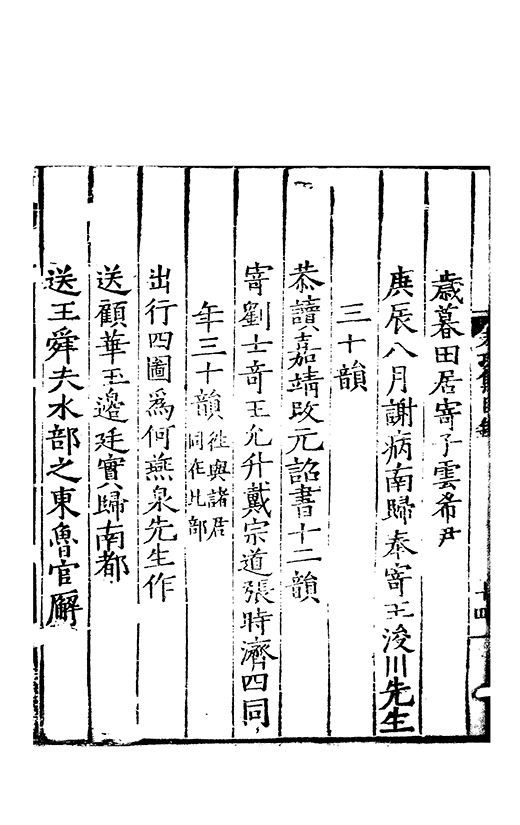 歲暮田居寄子雲希尹
庚辰八月謝病南歸奉寄王浚川先生
三十韻
恭讀嘉靖改元詔書十二韻
寄劉士奇王允升戴宗道張時濟四同
年三十韻
徃與諸君
同作比部
出行四圖爲何燕泉先生作
送顧華玉邊廷實歸南都
送王舜夫水部之東魯官廨
十四